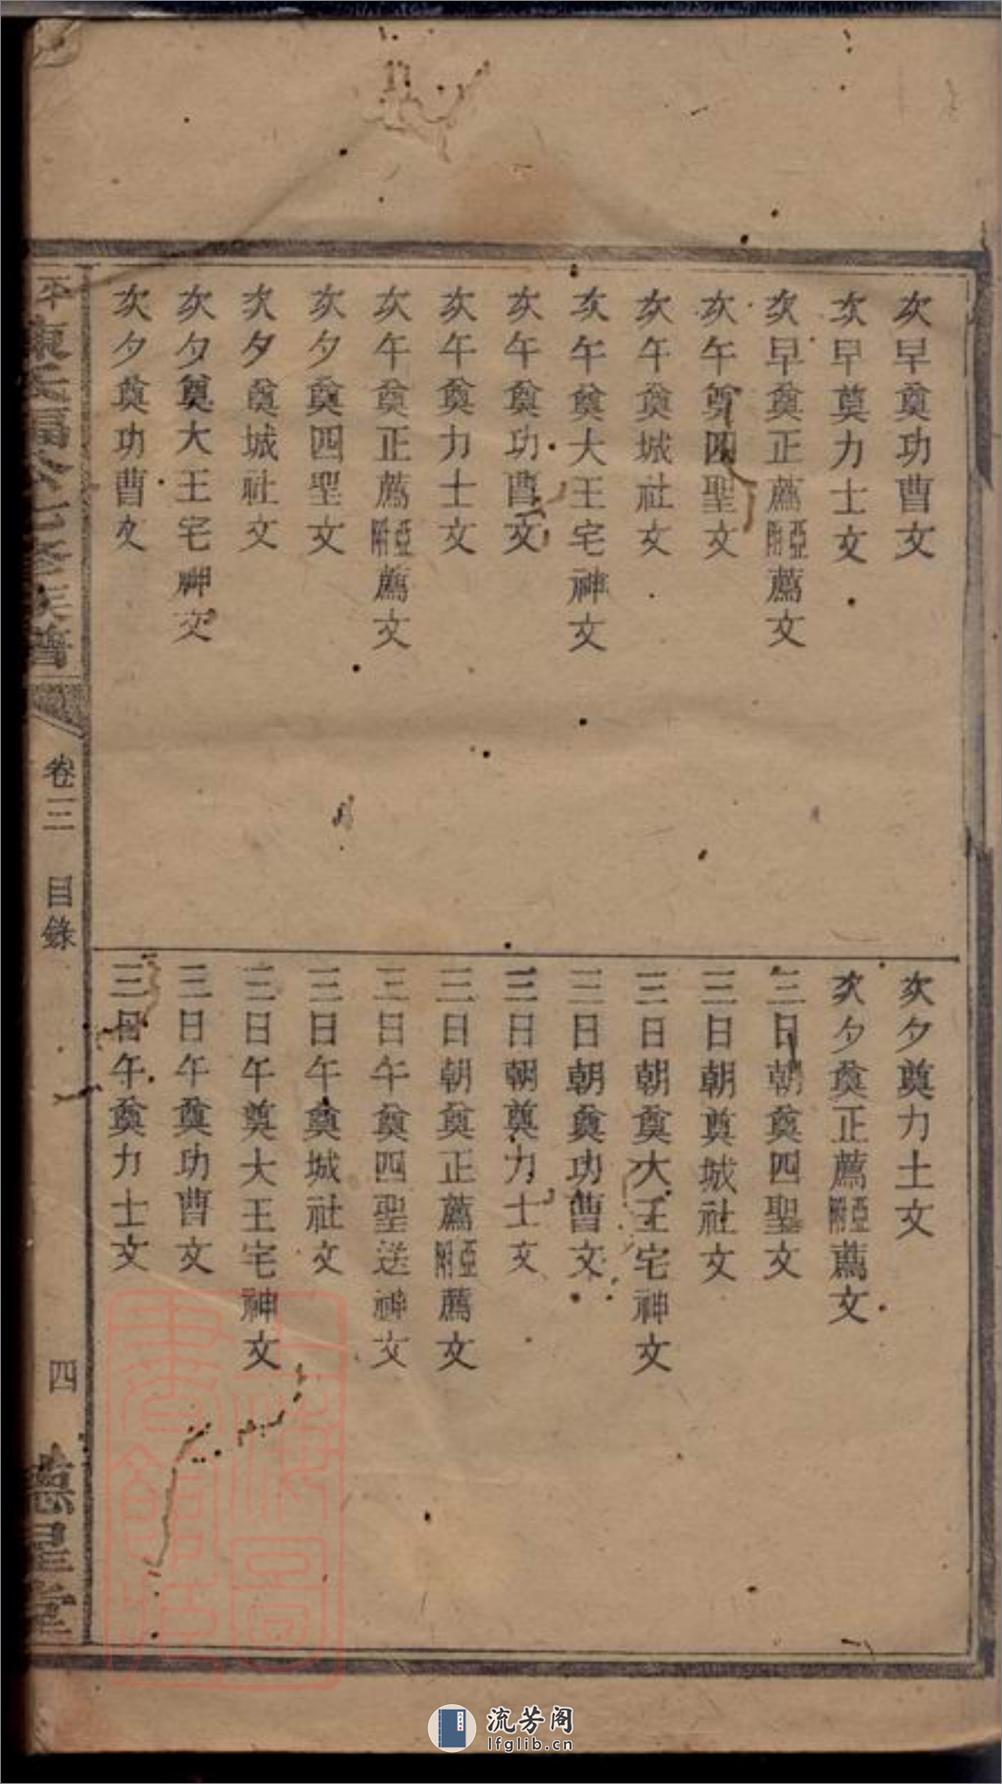 次早奠功曹文
次早奠力士文
次早奠正薦附亞薦文
次午奠四聖文
次午奠城社文
次午奠大王宅神文
次午奠功曹文
次午奠力士文
次午奠正薦附亞薦文
次夕奠四聖文
次夕奠城社文
次夕奠大王宅神文
次夕奠功曹文
次夕奠力士文
次夕奠正薦附亞薦文
三日朝奠四聖文
三日朝奠城社文
三日朝奠大王宅神文
三日朝奠功曹文
三日朝奠力士文
三日朝奠正薦附亞薦文
三日午奠四聖送神文
三日午奠城社文
三日午奠大王宅神文
三日午奠功曹文
三日午奠力士文
卷三 目錄
四
星堂
流芳阁
lfglib.cn